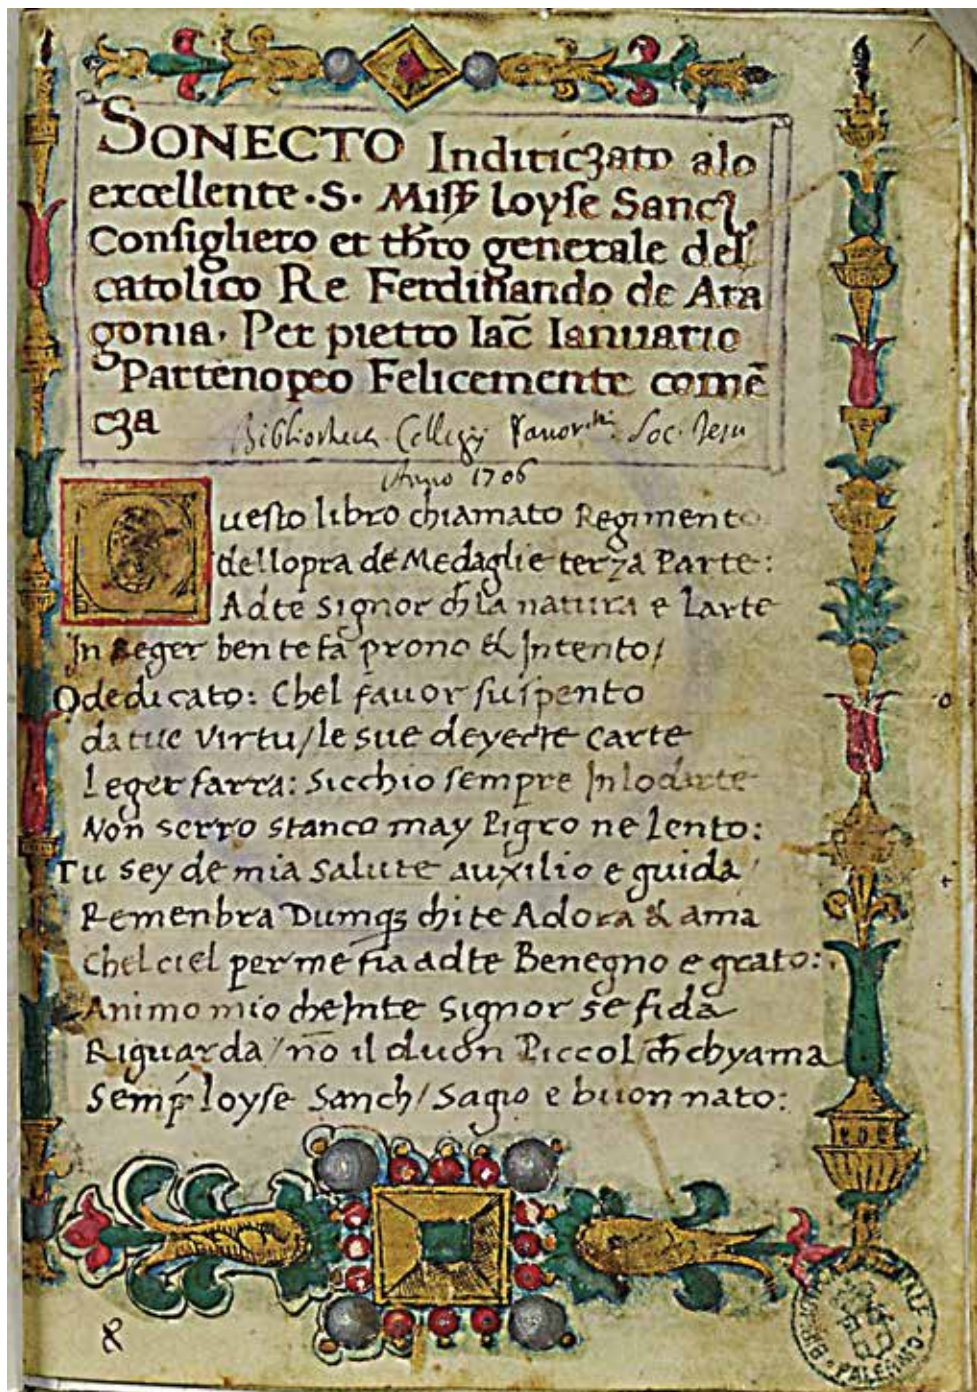 SONECTO Inditiczato alo
excellente · S · Miss̃ loyse Sancz̃.
Consigliero et thr̃o generale del
catolico Re Ferdinando de Ara
gonia. Per pietro Iac̃ Ianuario
Partenopeo Felicemente comẽ
cza
Bibliotheca Collegij Panor. Soc. Jesu
Anno 1706
Questo libro chiamato Regimento
dellopra de Medaglie terza Parte:
Adte Signor ch̃ la natura e Larte
In Reger ben te fã prono & Intento/
O dedicato: Chel favor suspento
da tue virtu/ le sue deyecte carte
Leger farra: Sicchio sempre In lodarte
Non serro stanco may Pigro ne lento:
Tu sey de mia Salute auxilio e guida
Remenbra Dumqꝫ chi te Adora & ama
Chel ciel per me fia adte Benegno e grato:
Animo mio che Inte Signor se fida
Riguarda/ nõ il duon Piccol/ ch̃ chyama
Semp̃ loyse Sanch/ Sagio e buon nato:
PALERMO